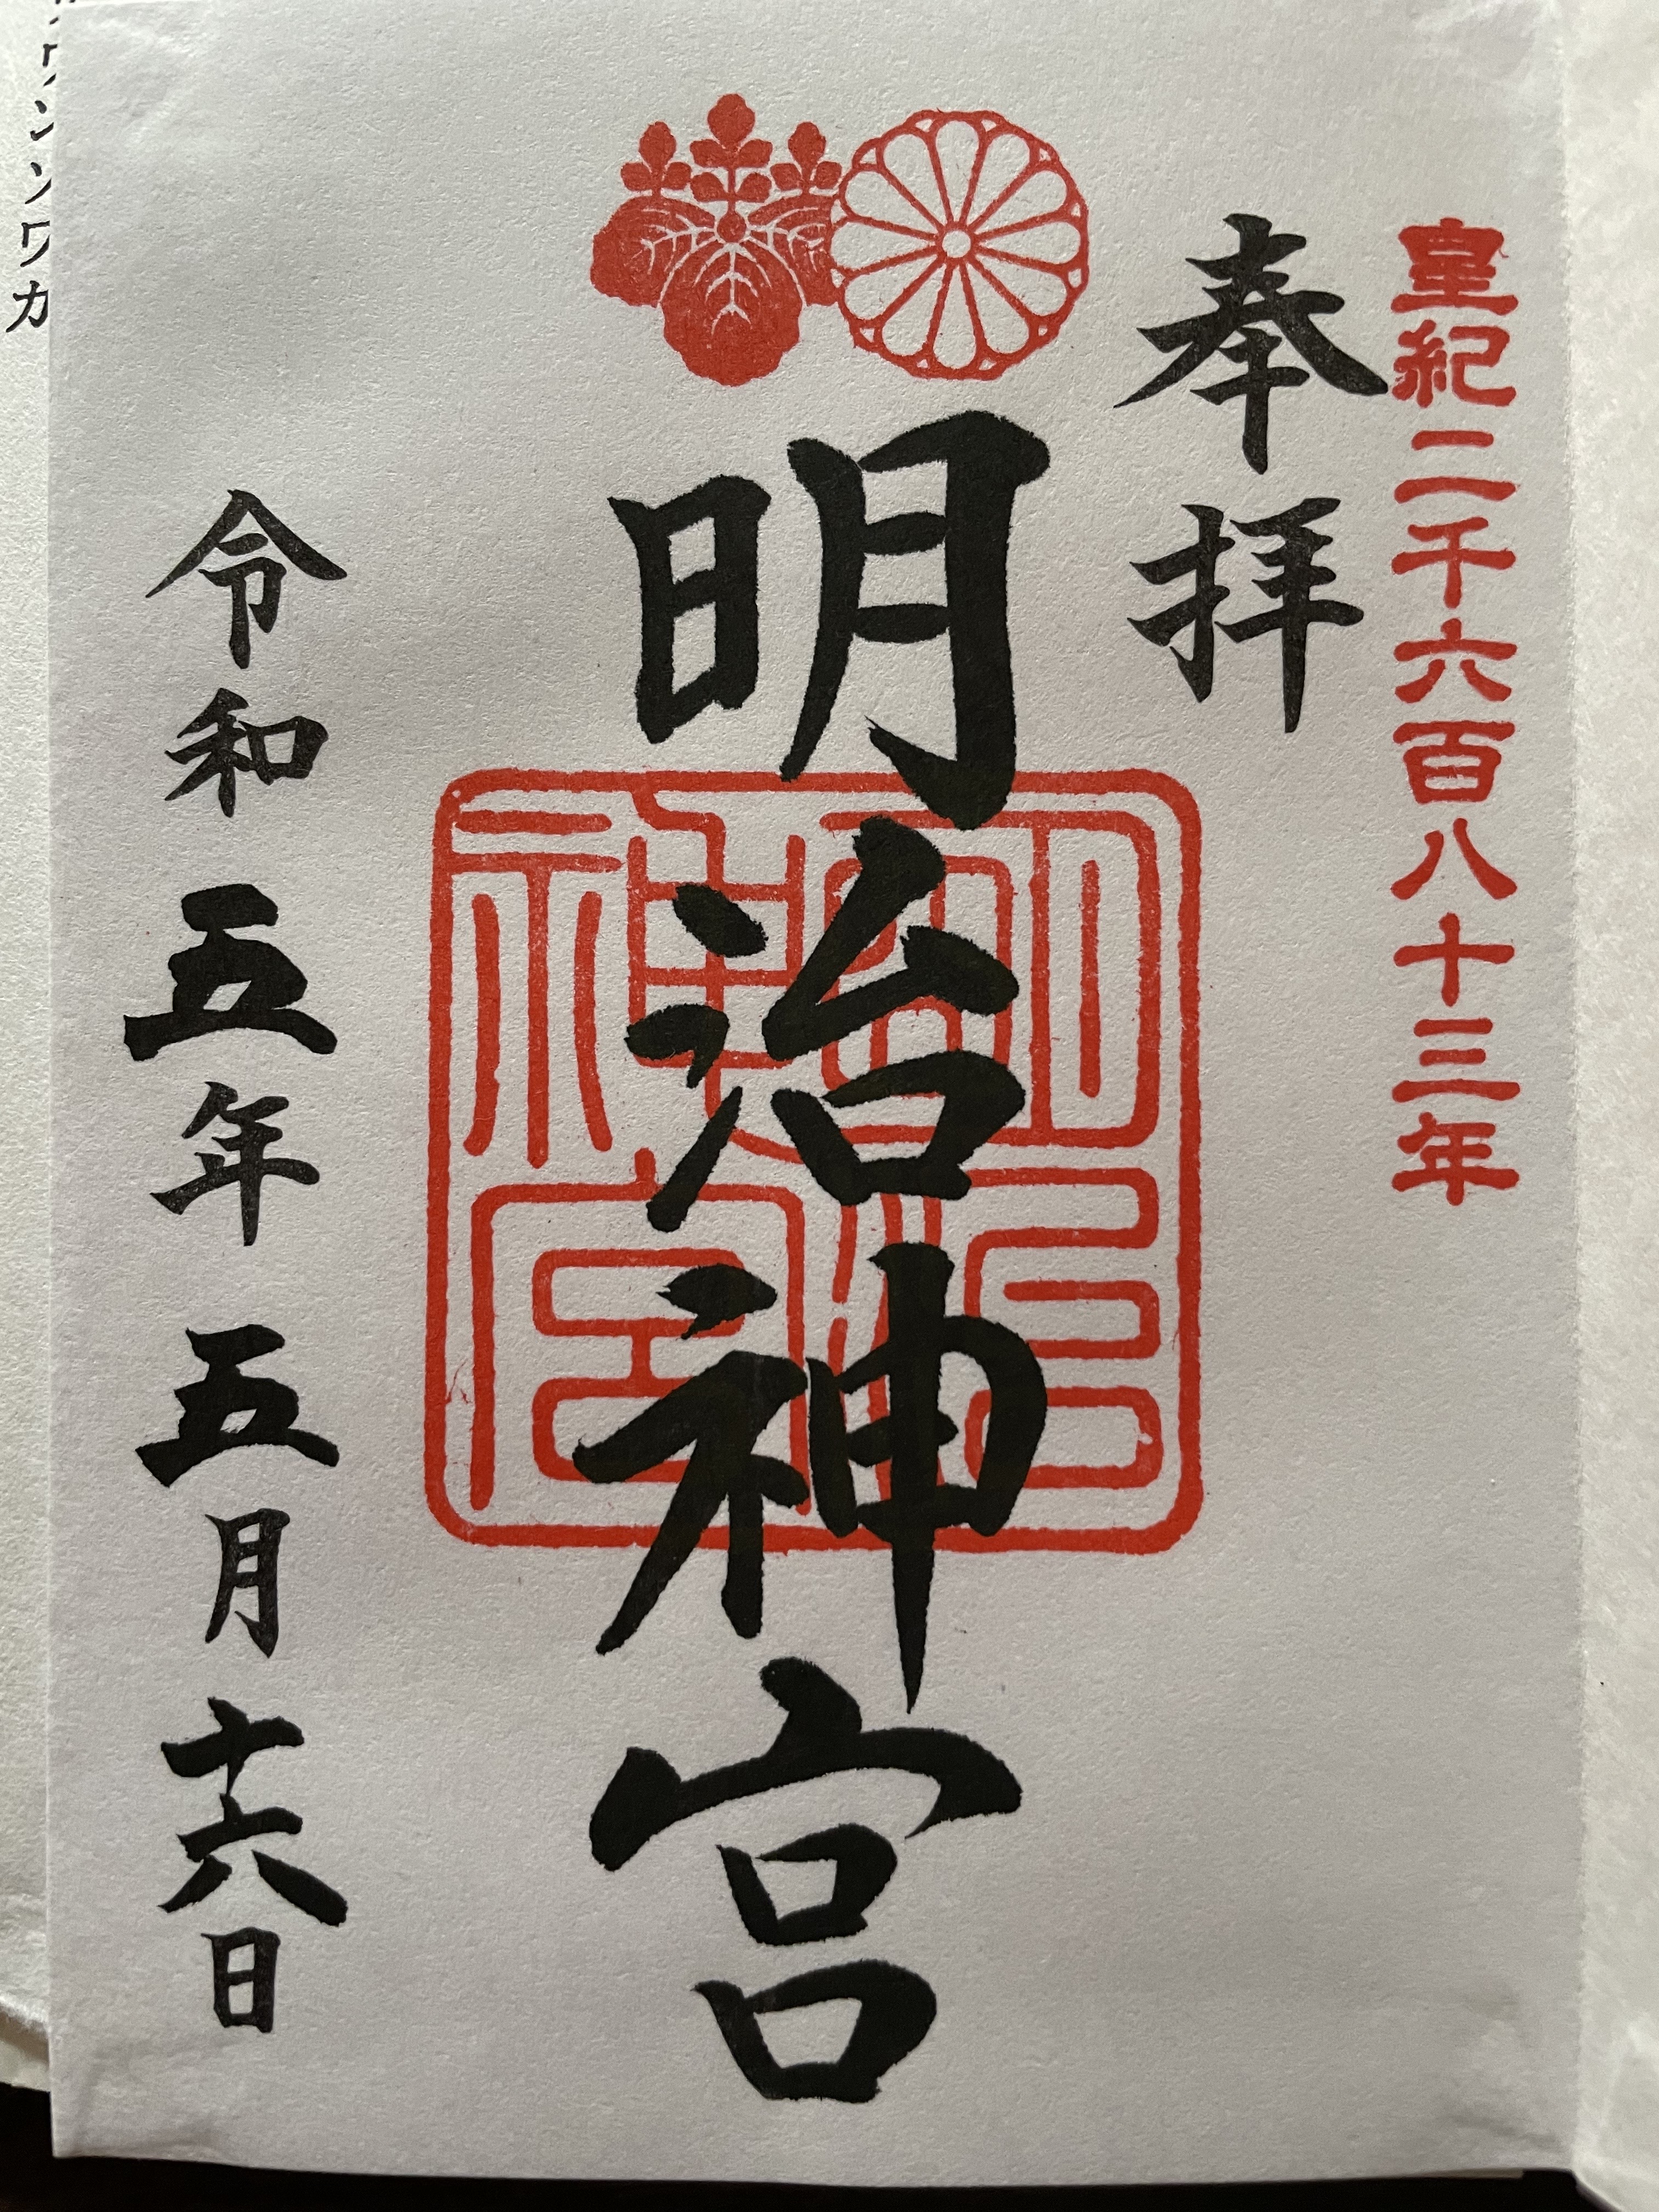 皇紀二千六百八十三年
奉拝
明治神宮
明治神宮
令和五年五月十六日